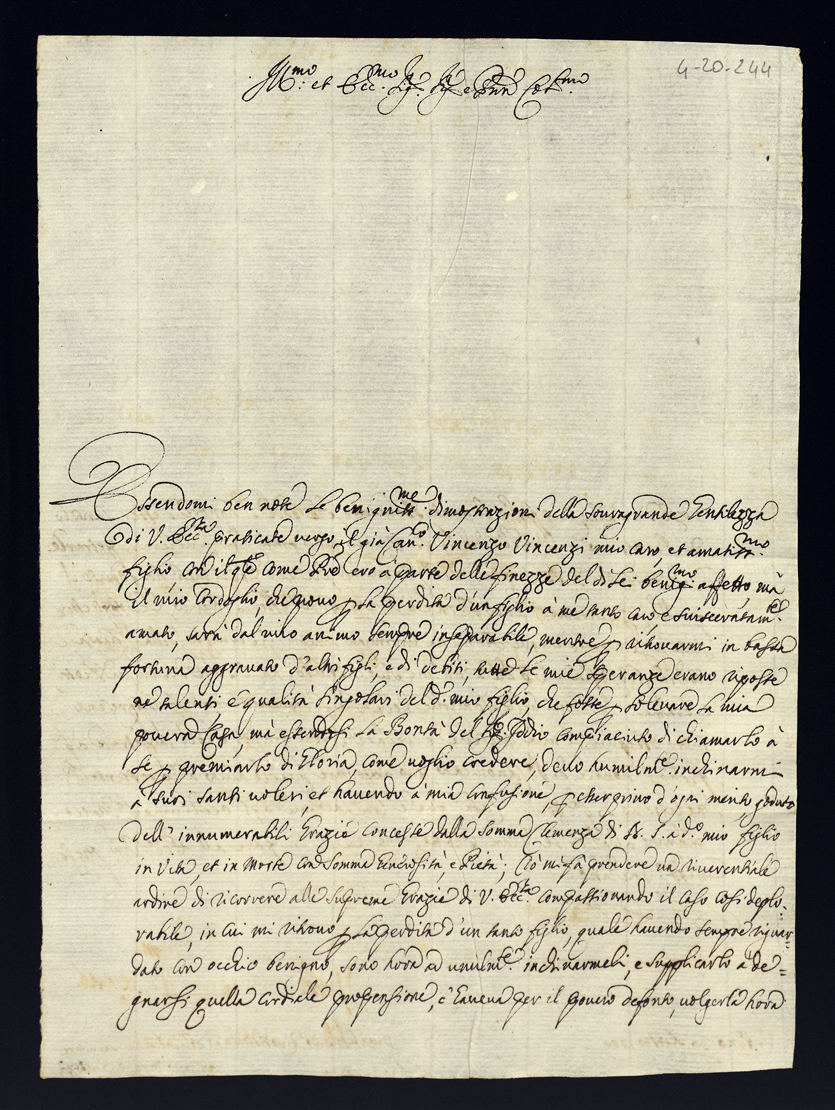 4-20-244
Ill.mo et Ecc.mo Sig.r Sig.r e Pron Col.mo
Essendomi ben note le benigniss.me dimostrazioni della souragrande Gentilezza
di V. Ecc.za praticate verso il già Can.co Vincenzo Vincenzi mio caro, et amatiss.mo
figlio con il q.le come P.re ero a parte delle finezze del di Lei benig.mo affetto, mà
il mio Cordoglio, che prouo p la perdita d'un figlio à me tanto caro e suisceratam.te
amato, sarà dal mio animo sempre inseparabile, mentre p ritrouarmi in bassa
fortuna aggrauato d'altri figli, e di debiti, tutte le mie speranze erano riposte
ne talenti e qualità singolari del d.o mio figlio, che fosse p soleuare la mia
pouera Casa, mà essendosi la Bontà del Sig.r Iddio compiaciuto di chiamarlo à
se p premiarlo di Gloria, come uoglio credere, deuo humilm.te inchinarmi
a' suoi santi uoleri, et hauendo à mia confusione, p esser priuo d'ogni merito goduto
dell' innumerabili Grazie concesse dalla somma Clemenza di N. S. à d.o mio figlio
in Vita, et in Morte con somma Generosità, e Pietà; Ciò mi fà prendere un riuerentiale
ardire di ricorrere alle supreme Grazie di V. Ecc.za compassionando il caso così deplo=
rabile, in cui mi ritrouo p la perdita d'un tanto figlio, quale hauendo sempre riguar=
dato con occhio benigno, sono hora ad umilm.te inchinarmeli, e supplicarlo a de=
gnarsi quella cordiale propensione, c'haueua per il pouero defonto, uolgerla hora